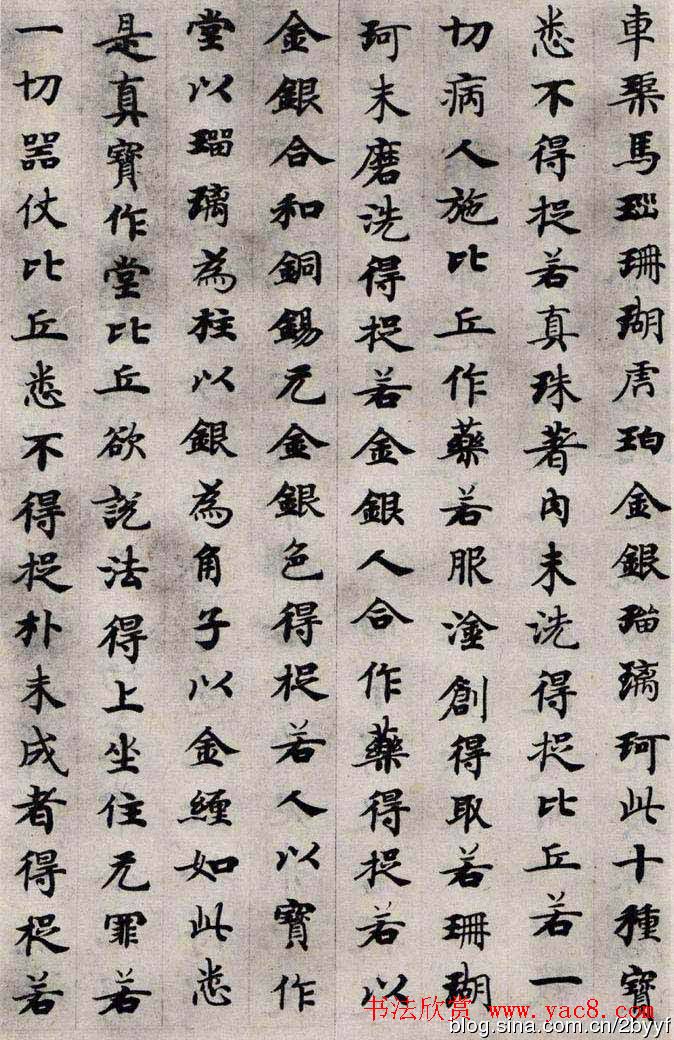 車渠馬瑙珊瑚虎珀金銀瑠璃珂此十種寶
悉不得捉若真珠著內未洗得捉比丘若一
切病人施比丘作藥若服塗創得取若珊瑚
珂未磨洗得捉若金銀人合作藥得捉若以
金銀合和銅錫无金銀色得捉若人以寶作
堂以瑠璃為柱以銀為角子以金纏如此悉
是真寶作堂比丘欲說法得上坐住无罪若
一切器仗比丘悉不得捉朴未成者得捉若
书法欣赏 www.yac8.com
blog.sina.com.cn/2byyf